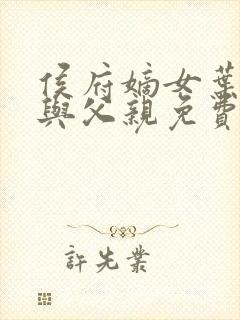 侯府嫡女葉
與父親免費
許先業